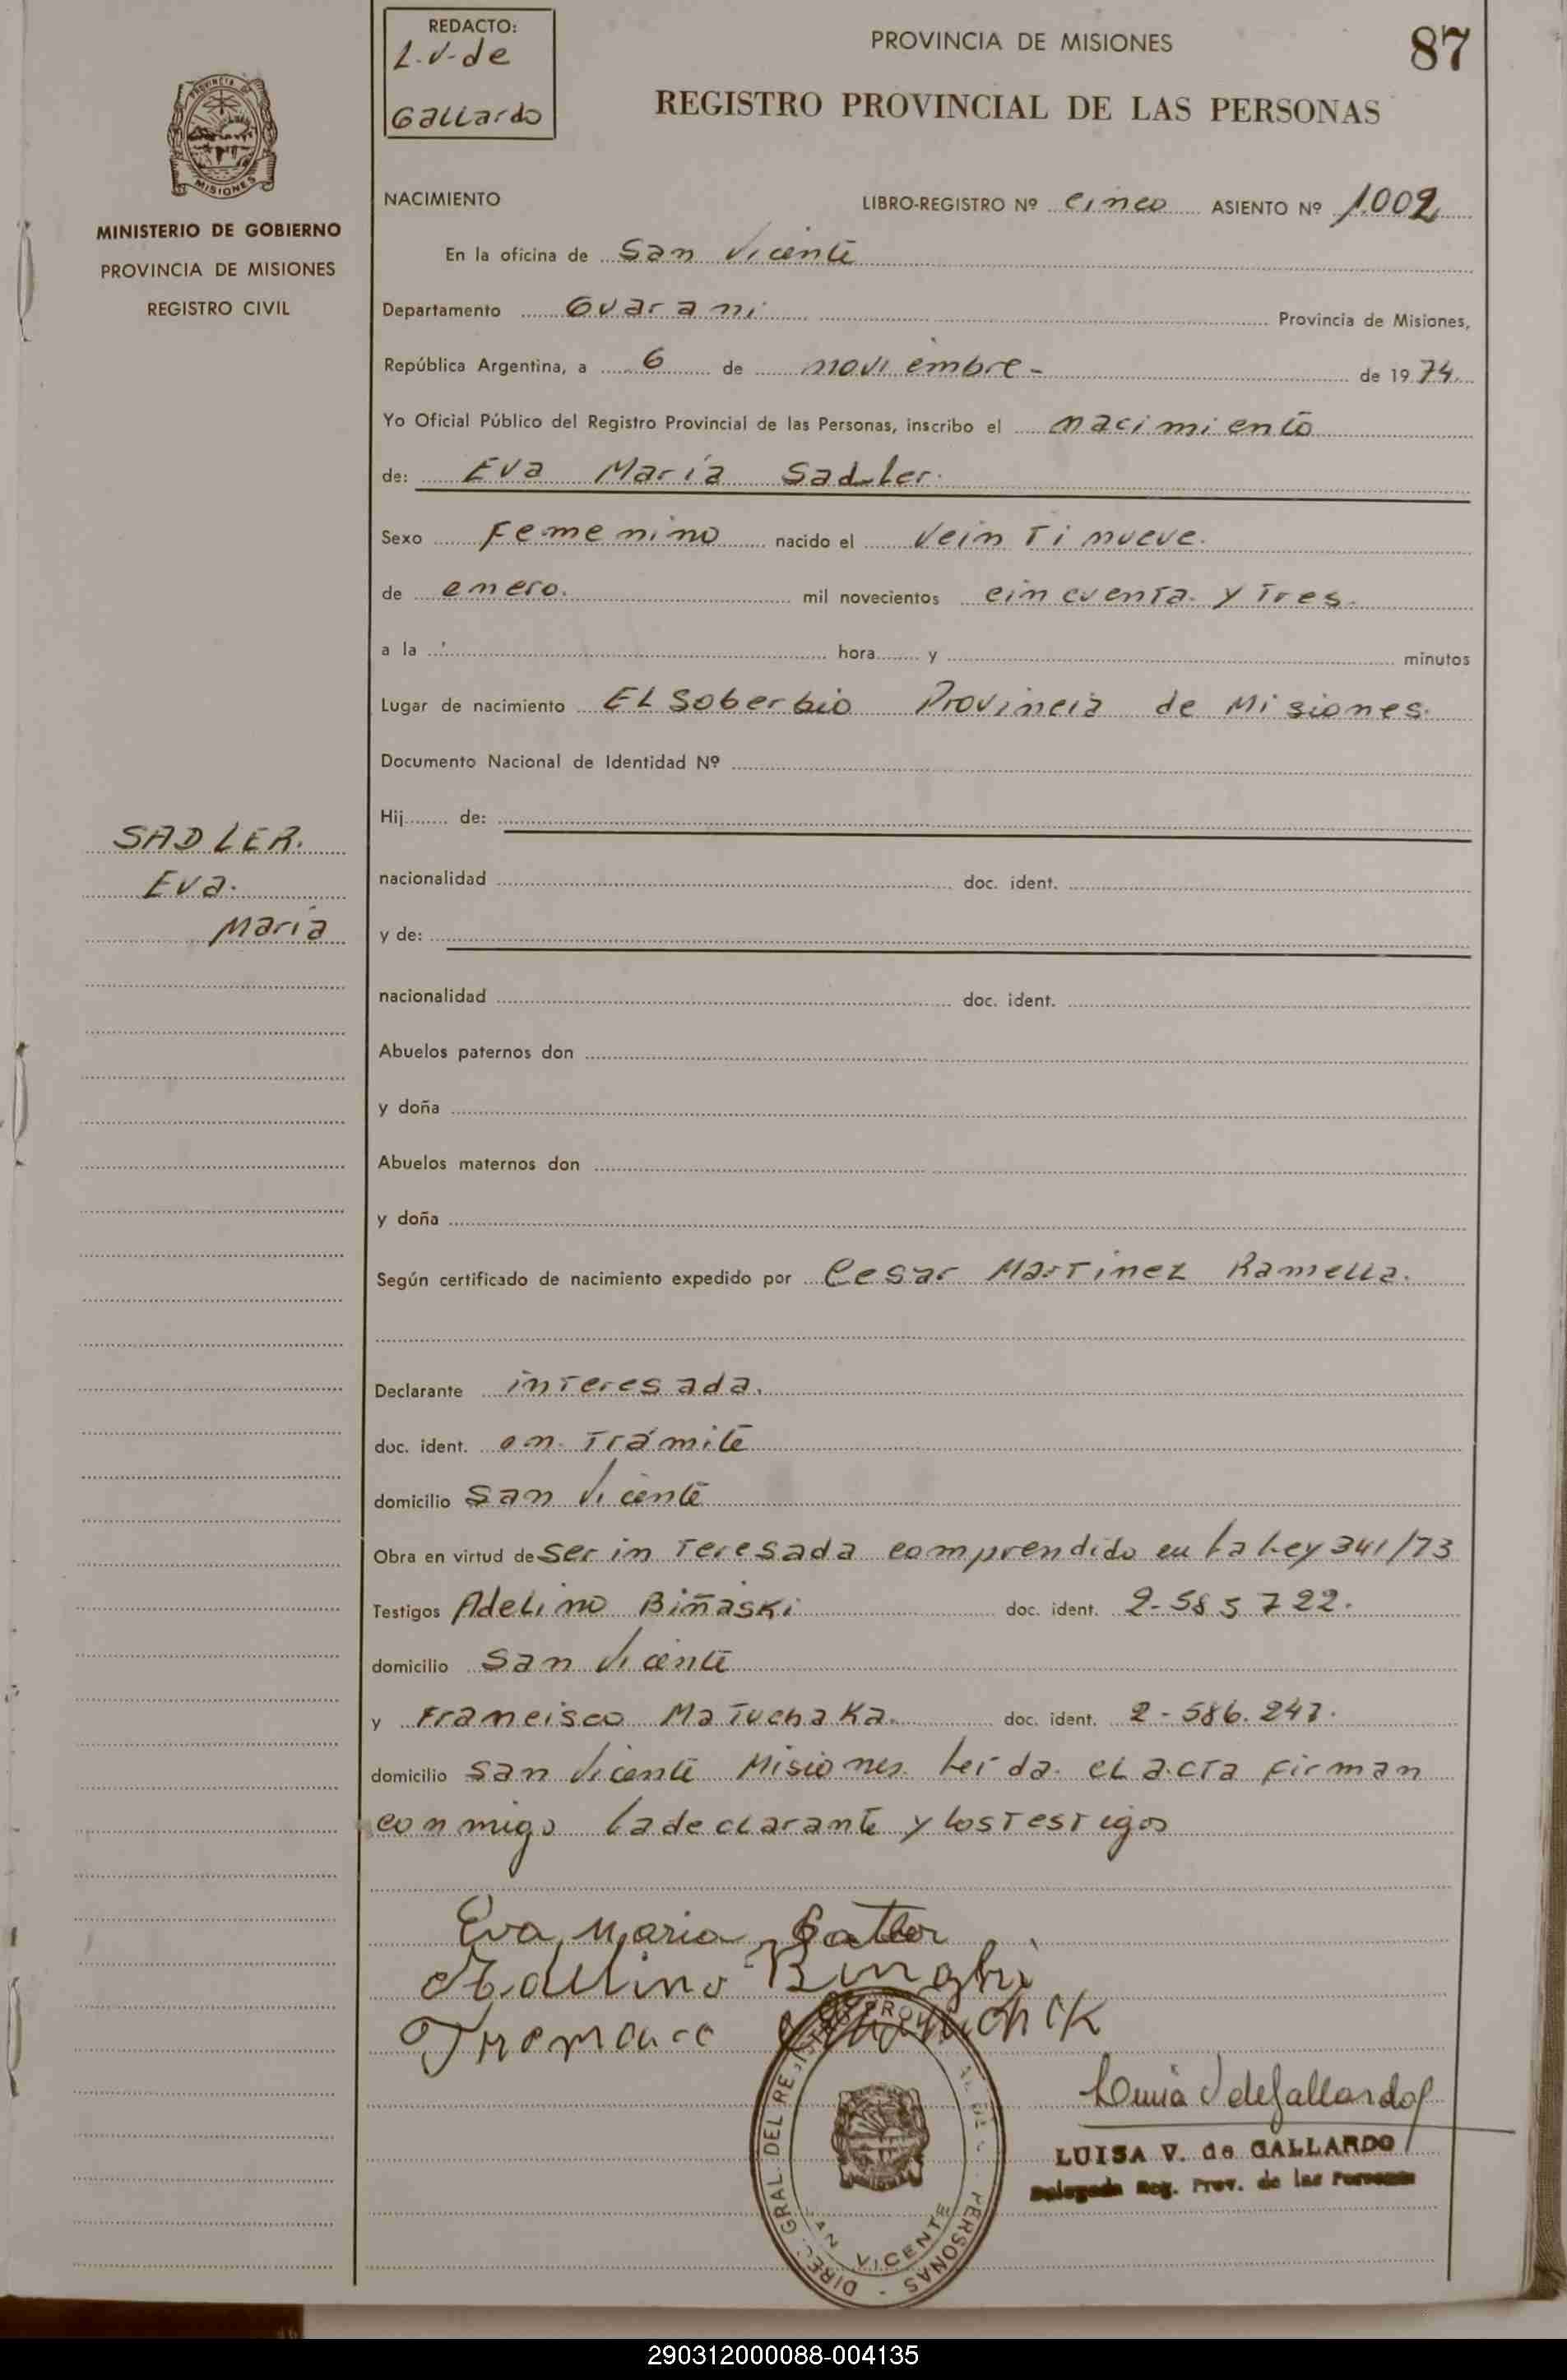 REDACTO:
L.V. de
Gallardo
PROVINCIA DE MISIONES
87
REGISTRO PROVINCIAL DE LAS PERSONAS
PROVINCIA DE
MISIONES
MINISTERIO DE GOBIERNO
PROVINCIA DE MISIONES
REGISTRO CIVIL
NACIMIENTO
LIBRO-REGISTRO Nº cinco ASIENTO Nº 1.002
En la oficina de San Vicente
Departamento Guarani Provincia de Misiones,
República Argentina, a 6 de noviembre - de 1974
Yo Oficial Público del Registro Provincial de las Personas, inscribo el nacimiento
de: Eva María Sadler.
Sexo Femenino nacido el Veintinueve.
de enero. mil novecientos cincuenta y Tres.
a la hora y minutos
Lugar de nacimiento El Soberbio Provincia de Misiones.
Documento Nacional de Identidad Nº
Hij de:
SADLER.
Eva.
María
nacionalidad doc. ident.
y de:
nacionalidad doc. ident.
Abuelos paternos don
y doña
Abuelos maternos don
y doña
Según certificado de nacimiento expedido por Cesar Martinez Ramella.
Declarante interesada.
doc. ident. en Trámite
domicilio San Vicente
Obra en virtud de ser interesada comprendido en la Ley 341/73
Testigos Adelino Biñaski doc. ident. 2-585722.
domicilio San Vicente
y Francisco Matuchaka. doc. ident. 2-586.247.
domicilio San Vicente Misiones. Leída el acta firman
conmigo la declarante y los Testigos
Eva Maria Satler
LUISA V. de GALLARDO
Delegada Reg. Prov. de las Personas
DIREC. GRAL. DEL REGISTRO PROV. DE LAS PERSONAS -
SAN VICENTE
290312000088-004135